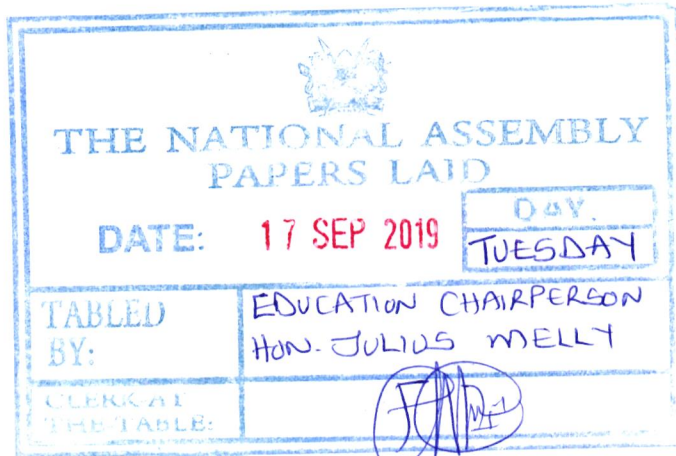 THE NATIONAL ASSEMBLY
PAPERS LAID
DAY.
DATE: 17 SEP 2019
TUESDAY
TABLED BY:
EDUCATION CHAIRPERSON
HON. JULIUS MELLY
CLERK AT THE TABLE: